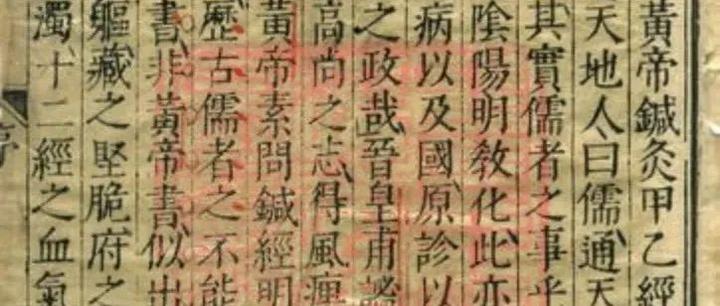 黃帝鍼灸甲乙經
天地人曰儒通天
其實儒者之事乎
陰陽明敎化此亦
病以及國原診以
之政哉晉皇甫謐
高尚之志得風痺
黃帝素問鍼經明
歷古儒者之不能
書非黃帝書似出
軀藏之堅脆府之
濁十二經之血氣
序